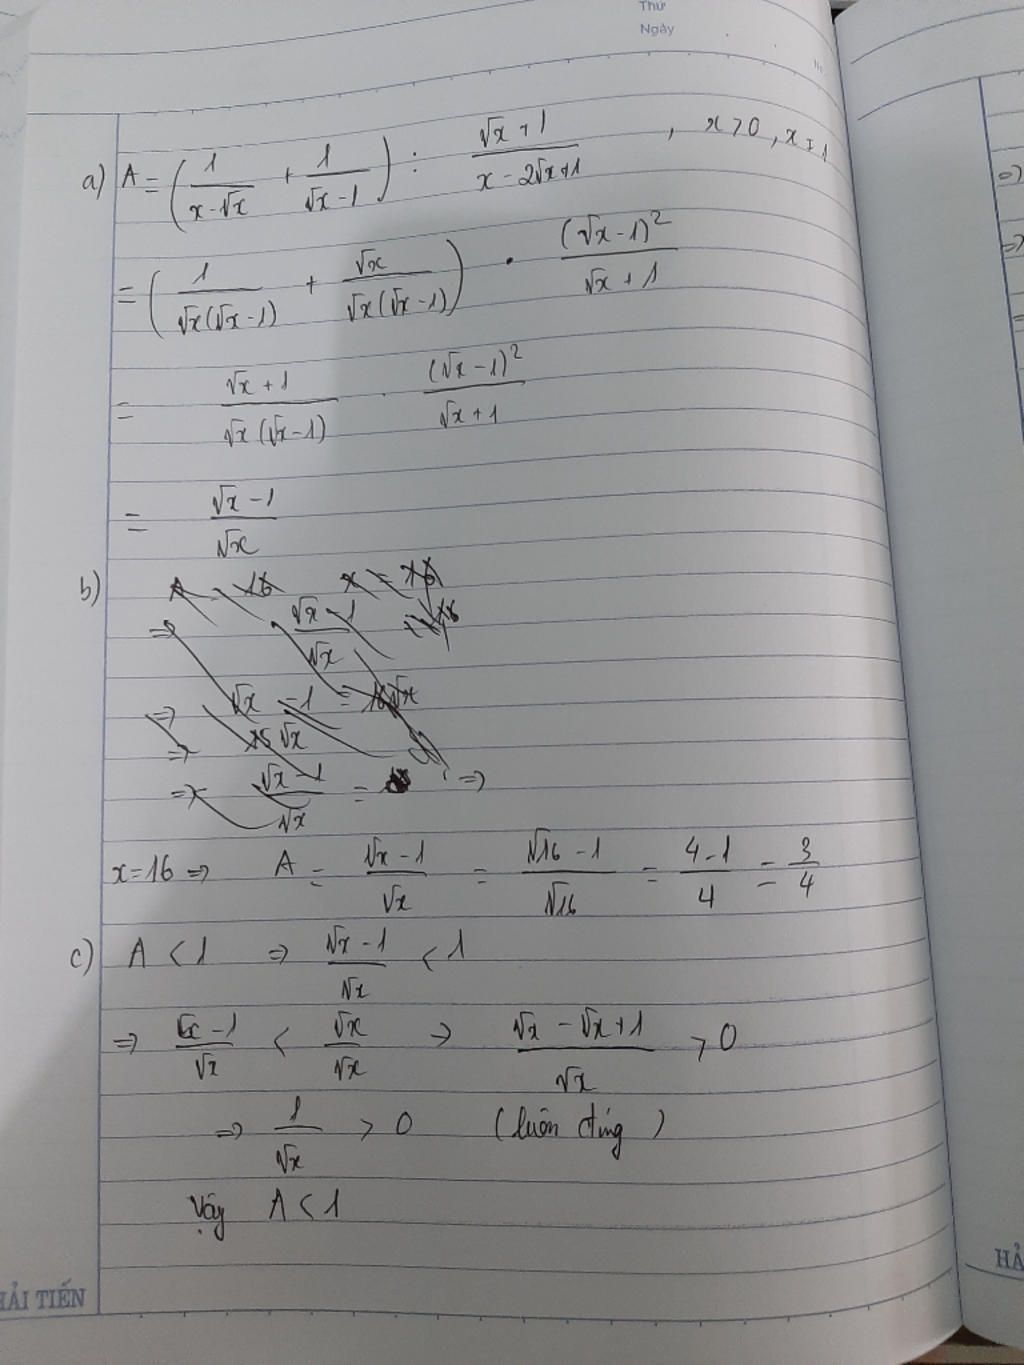 Thứ
Ngày
a) A = (1/(x-√x) + 1/(√x-1)) : (√x+1)/(x-2√x+1) , x>0, x≠1
= (1/(√x(√x-1)) + √x/(√x(√x-1))) · (√x-1)²/(√x+1)
= (√x+1)/(√x(√x-1)) · (√x-1)²/(√x+1)
= (√x-1)/√x
b)
x=16 => A = (√x-1)/√x = (√16-1)/√16 = (4-1)/4 = 3/4
c) A < 1 => (√x-1)/√x < 1
=> (√x-1)/√x < √x/√x => (√x-√x+1)/√x > 0
=> 1/√x > 0 (luôn đúng)
Vậy A < 1
HẢI TIẾN
HẢ